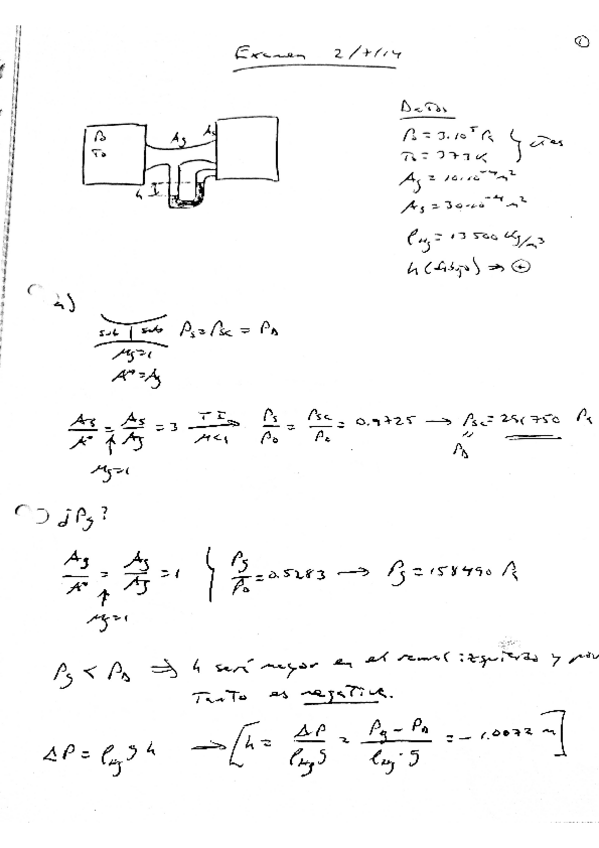 ①
Examen 2/7/14
Datos
P₀ T₀ A_g A_s h
P₀ = 3·10⁵ Pa } ctes
T₀ = 373 K
A_g = 10·10⁻⁴ m²
A_s = 30·10⁻⁴ m²
ρ_Hg = 13500 Kg/m³
h (dibujo) ⇒ ⊕
a)
sub | sub P_s = P_sc = P_D
M_g = 1
A* = A_g
A_s/A* = A_s/A_g = 3 —TI M<1→ P_s/P₀ = P_sc/P₀ = 0.9725 → P_sc = 291750 Pa
M_g = 1
P_D
) ¿P_g?
A_g/A* = A_g/A_g = 1 } P_g/P₀ = 0.5283 → P_g = 158490 Pa
M_g = 1
P_g < P_D ⇒ h será mayor en el ramal izquierdo y por
tanto es negativa.
ΔP = ρ_Hg g h → [h = ΔP/(ρ_Hg g) = (P_g - P_D)/(ρ_Hg · g) = -1.0072 m]